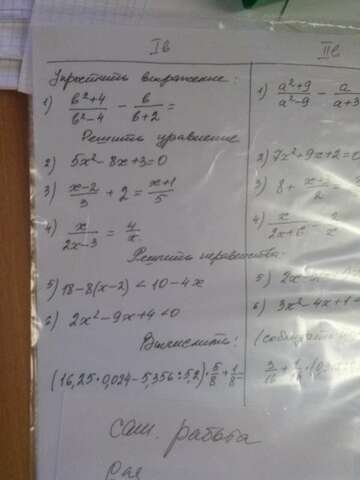 Iв
Упростить выражение:
1) (в²+4)/(в²-4) - в/(в+2) =
Решить уравнение
2) 5x² - 8x + 3 = 0
3) (x-2)/3 + 2 = (x+1)/5
4) x/(2x-3) = 4/x
Решить неравенства:
5) 18-8(x-2) < 10-4x
6) 2x² - 9x + 4 < 0
Вычислить:
(16,25·0,024 - 5,356:5,2)·5/8 + 1/8
IIв
1) (a²+9)/(a²-9) - a/(a+3)
2) 7x² + 9x + 2 = 0
3) 8 +
4)
5) 2x
6) 3x² - 4x + 1
3/16 + 
Сам. работа